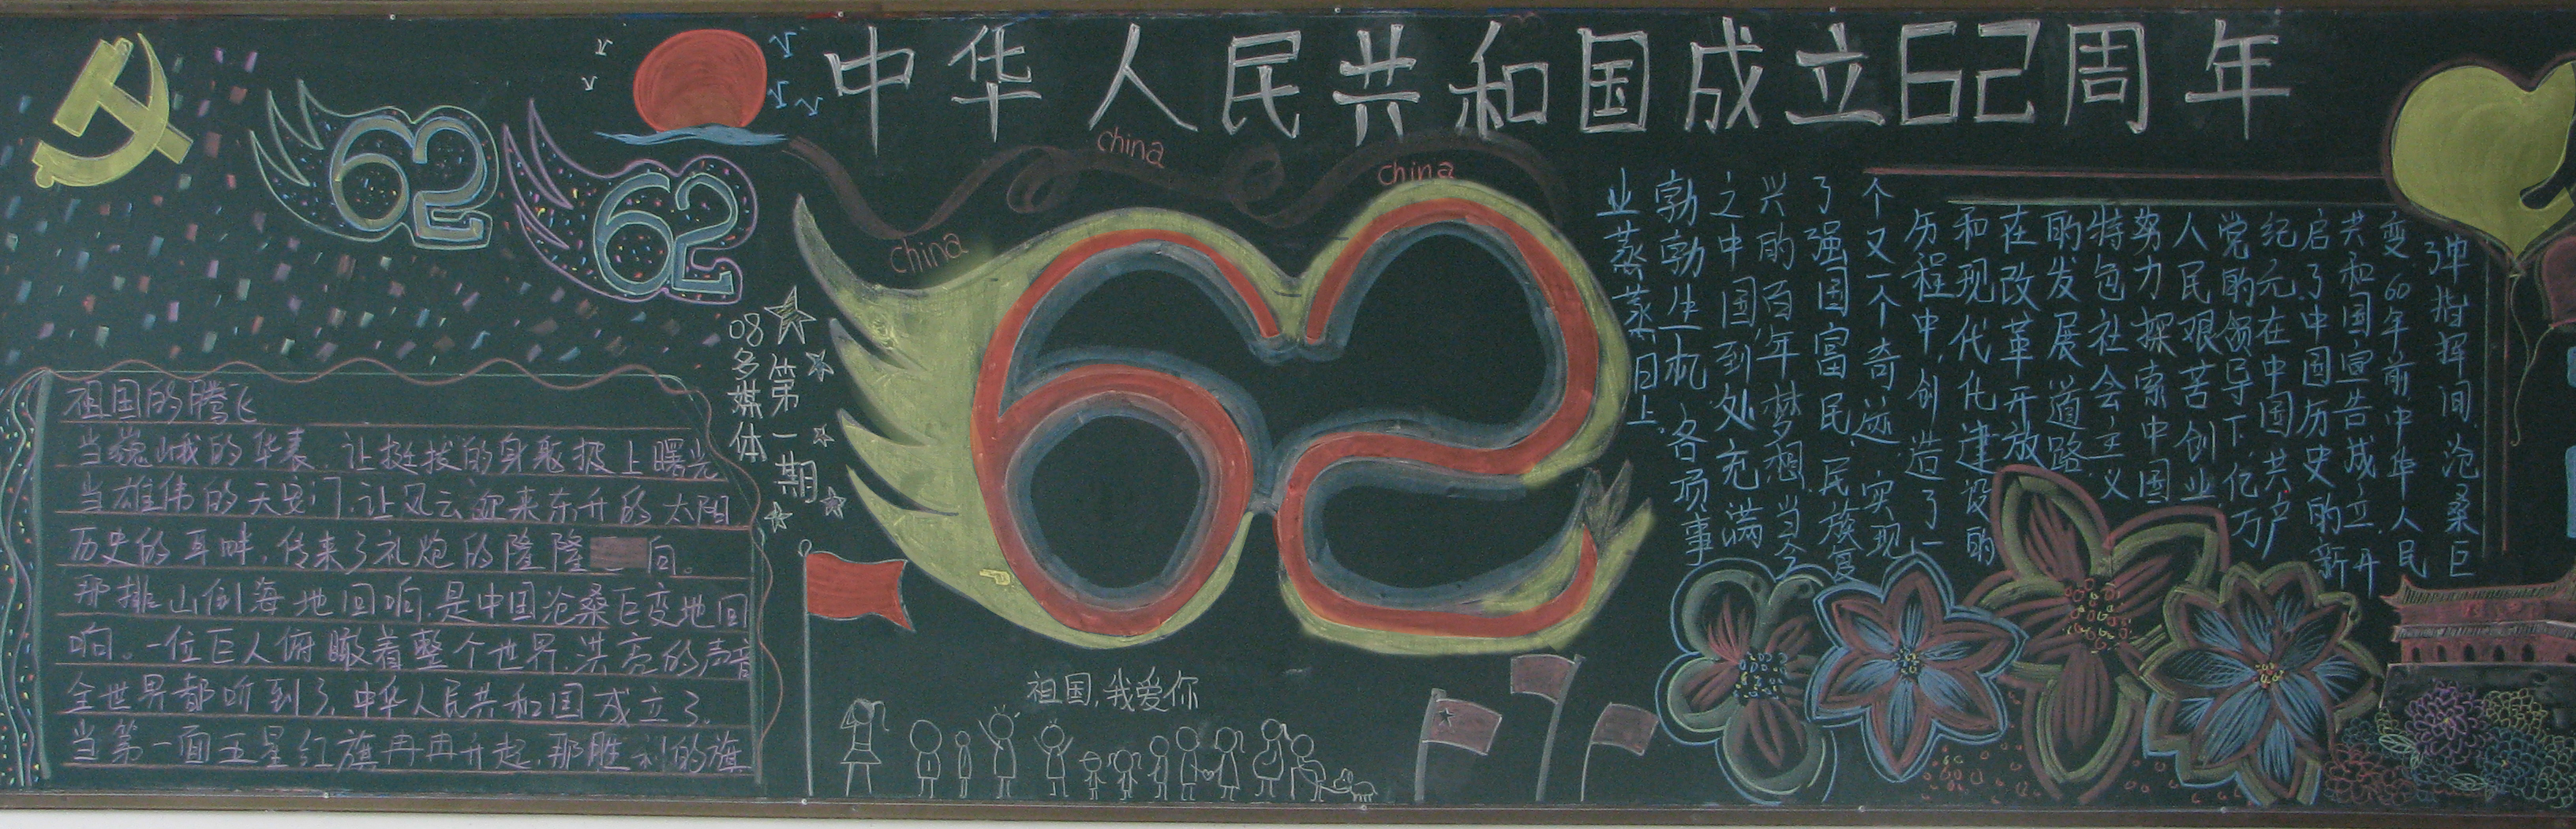 中华人民共和国成立62周年
62
62
china
china
china
62
08多媒体
第一期
祖国的腾飞
当巍峨的华表,让挺拔的身躯披上曙光
当雄伟的天安门,让风云迎来东升的太阳
历史的耳畔,传来了礼炮的隆隆回向。
那排山倒海地回响,是中国沧桑巨变地回
响。一位巨人俯瞰着整个世界,洪亮的声音
全世界都听到了,中华人民共和国成立了。
当第一面五星红旗冉冉升起,那胜利的旗
祖国,我爱你
弹指挥间,沧桑巨
变60年前,中华人民
共和国宣告成立,开
启了中国历史的新
纪元在中国共产
党的领导下,亿万
人民艰苦创业
努力探索中国
特色社会主义
的发展道路
在改革开放
和现代化建设的
历程中,创造了一
个又一个奇迹,实现
了强国富民、民族复
兴的百年梦想,当今
之中国到处充满
勃勃生机,各项事
业蒸蒸日上。